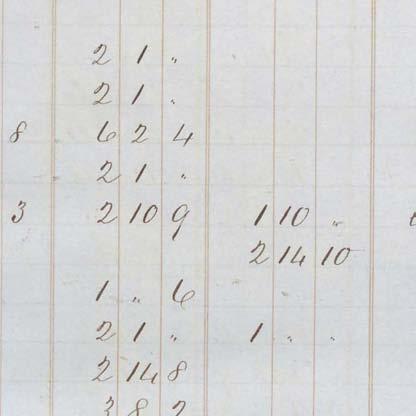 2 1 "
2 1 "
8 6 2 4
2 1 "
3 2 10 9 1 10 "
2 14 10
1 " 6
2 1 " 1 " "
2 14 8
3 8 2